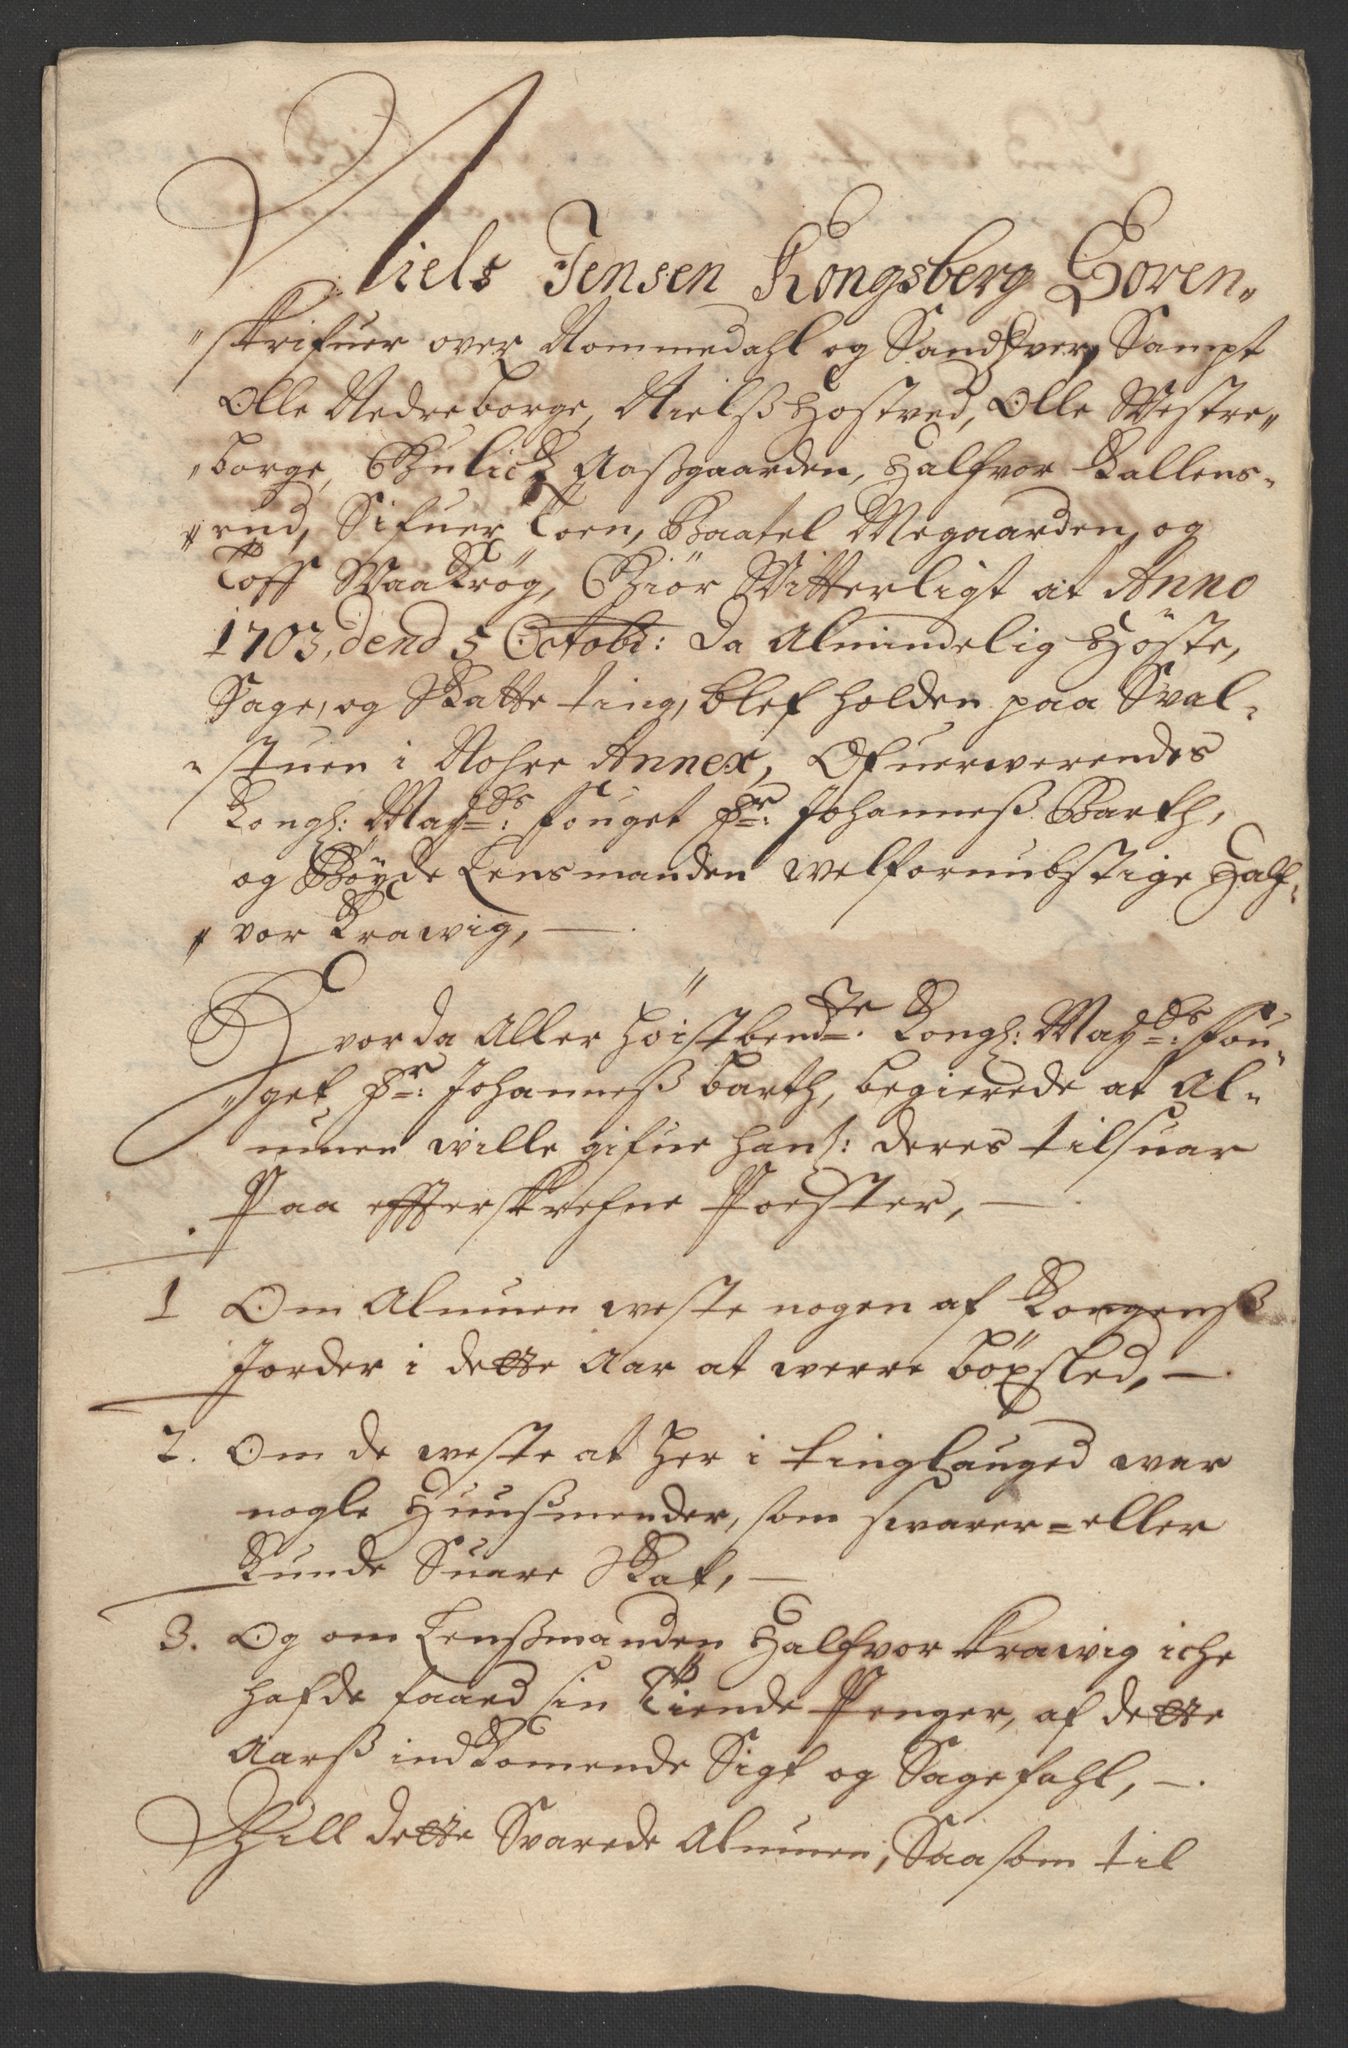 Niels Jensen Kongsberg Soren„
„skrifuer over Nommedahl og Sandsver, Sampt
Olle Nedreborge, Nielß Hostved, Olle Westre„
„borge, Gulich Aaßgaarden, Halfvor Kallens„
„rud, Sifuer Toen, Baatel Megaarden, og
Toff Waakrøg, Giör Witterligt at Anno
1703, dend 5 Octobr: da Almindelig Höste,
Sage, og Skatte ting, blef holden paa Sval„
„stuen i Nohre Annex, Ofuerwerendes
Kongl: Mayds: fouget Hr: Johanneß Barth,
og Bøyde Lensmanden welfornubstige Half„
„vor Krawig, —.
Hvorda Aller höistbemdte. Kongl: Mayds: fou„
„get Hr: Johanneß barth, begierede at Al„
muen wille gifue hans: deres tilsuar
Paa effterskrefne Poster, —.
1 Om Almuen weste nogen af Kongenß
Jorder i dette Aar at werre böxsled, —.
2. Om de weste at her i tinglauged war
nogle Huußmender, som swarer=eller
Kunde Suare Skat, —
3. Og om Lenßmanden Halfvor Krawig iche
hafde faaed sin Tiende Penger, af dette
Aarß indkomende Sigt og Sagefahl, —.
Till dette Svarede Almuen, Saasom til